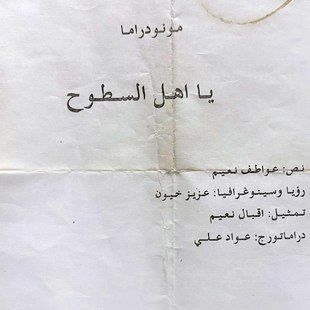 مونودراما
يا اهل السطوح
نص: عواطف نعيم
رؤيا وسينوغرافيا: عزيز خيون
تمثيل: اقبال نعيم
دراماتورج: عواد علي